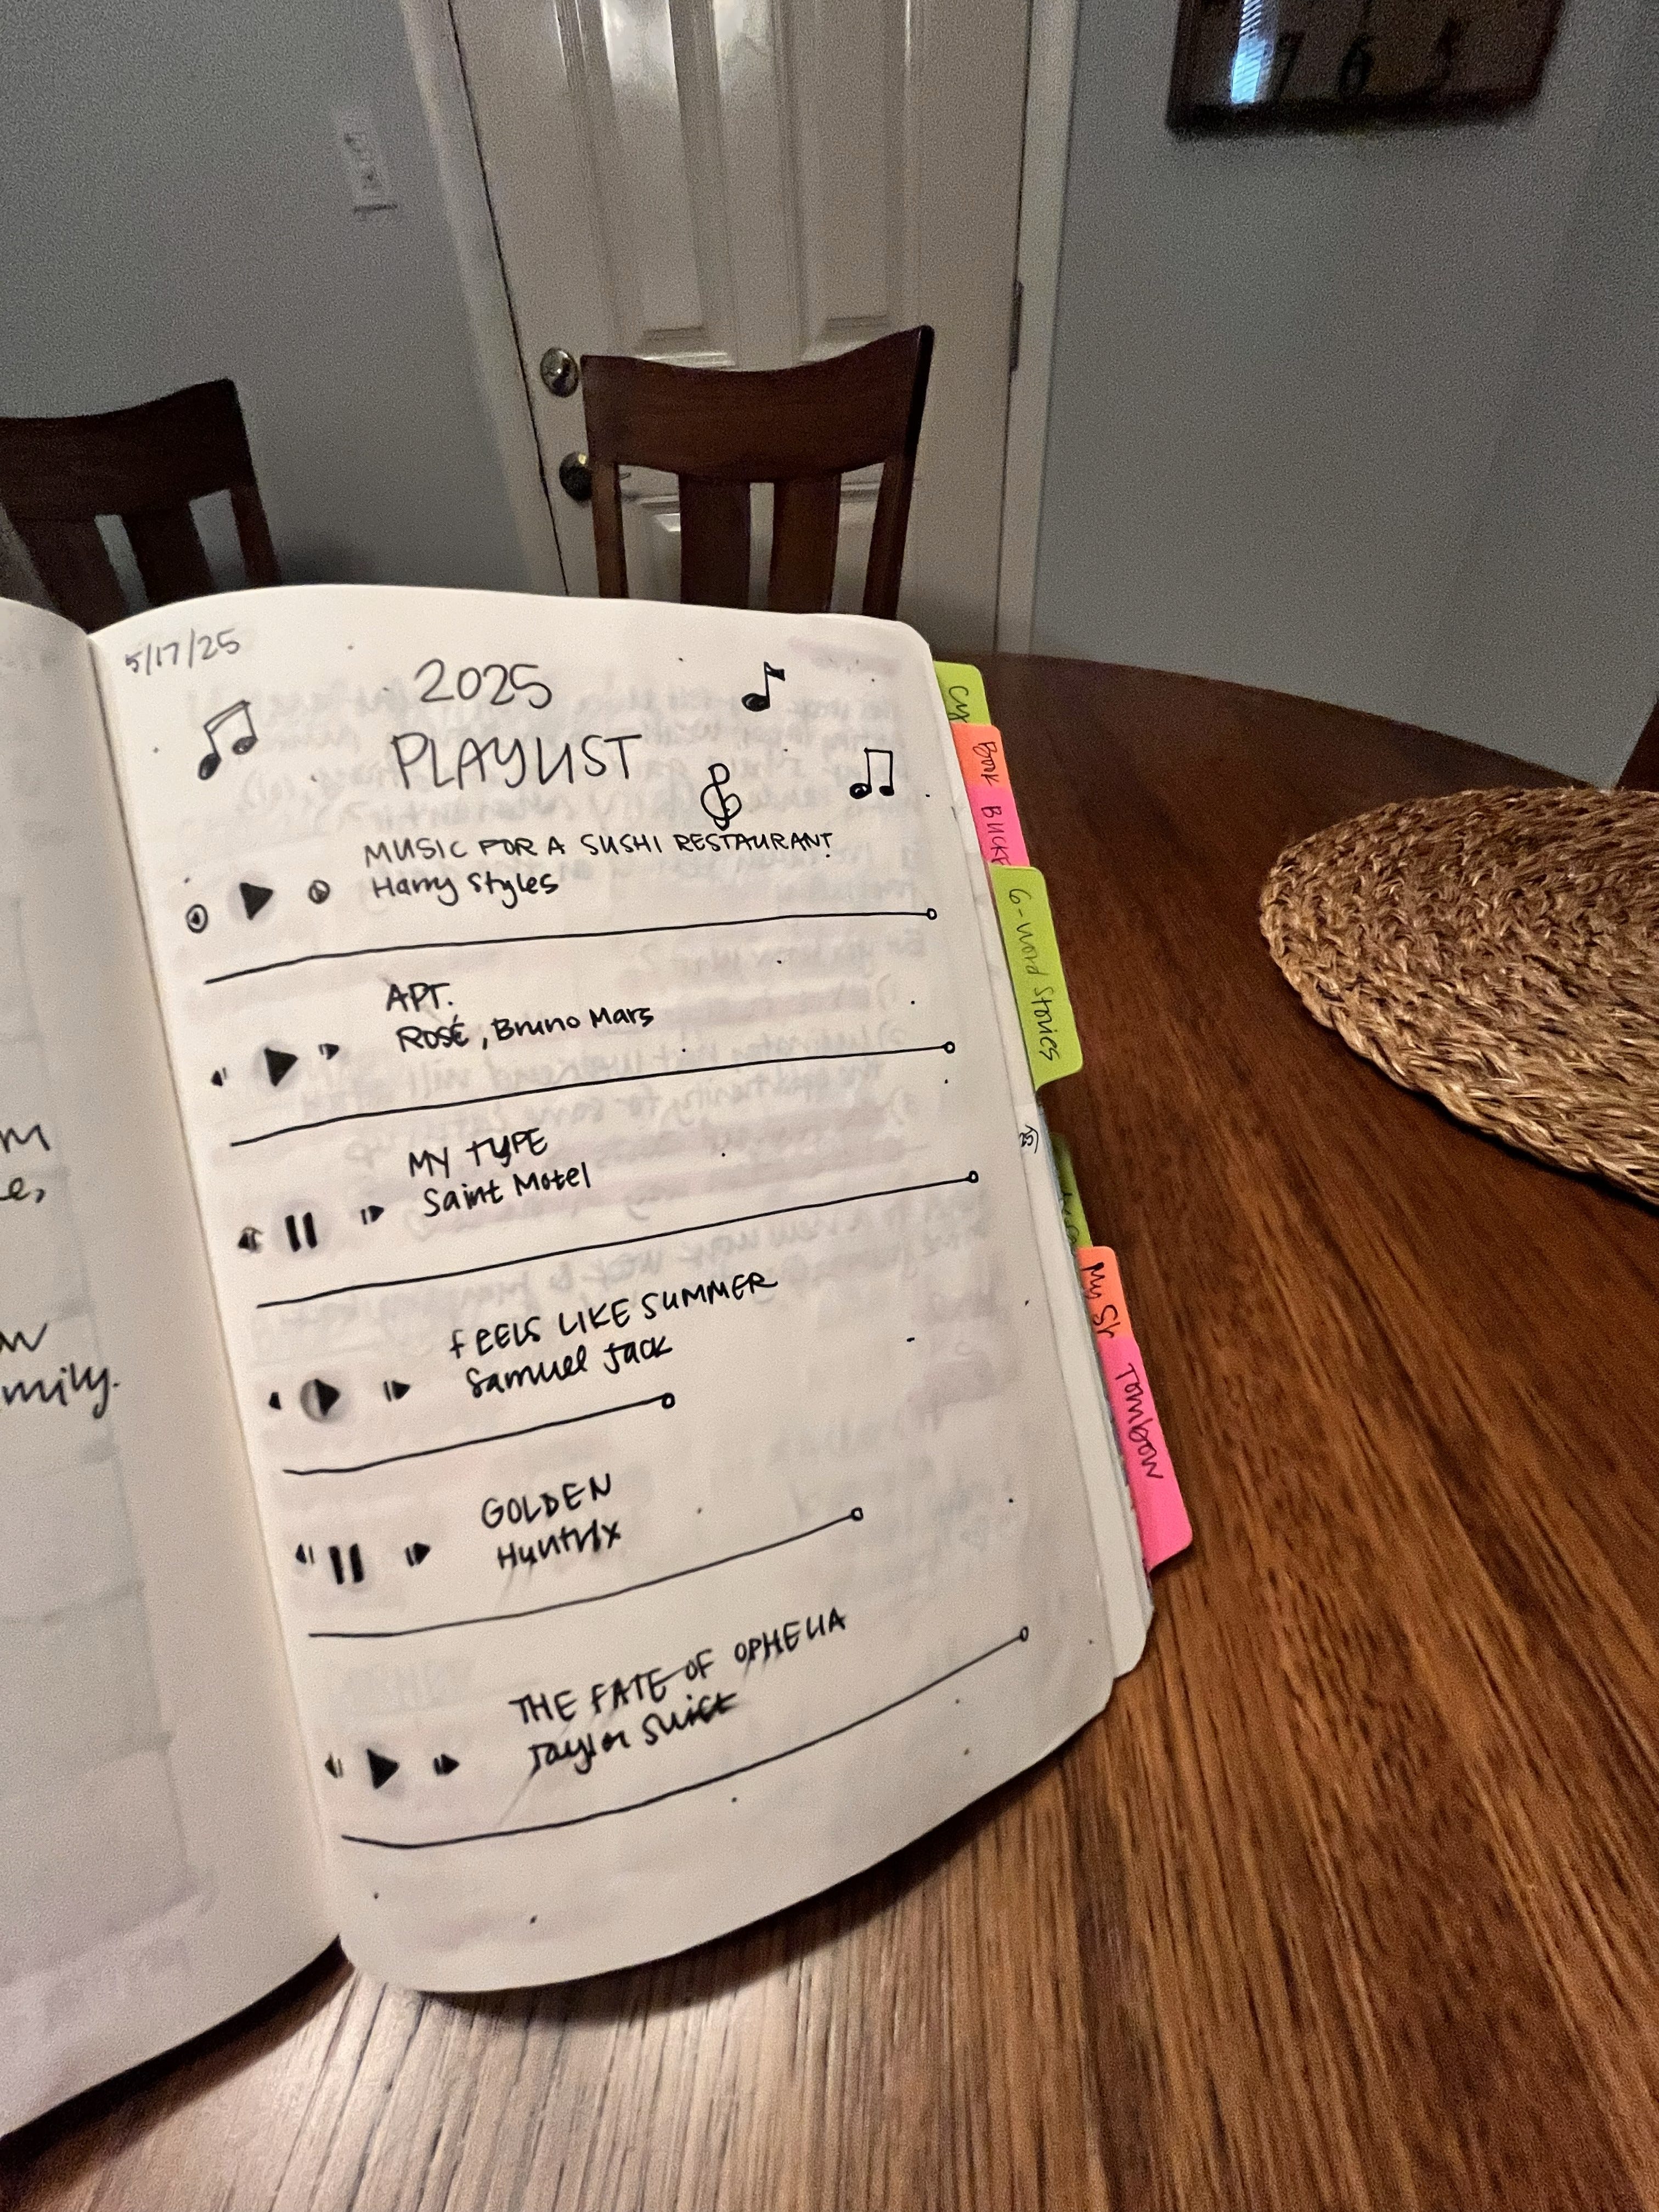 5/17/25
2025
PLAYLIST
MUSIC FOR A SUSHI RESTAURANT
Harry Styles
APT.
ROSÉ, Bruno Mars
MY TYPE
Saint Motel
FEELS LIKE SUMMER
Samuel Jack
GOLDEN
Huntr/x
THE FATE OF OPHELIA
Taylor Swift
m
e,
w
mily.
Cy
Book
BUCKE
6-Word Stories
My St
Tombow
7 6 5